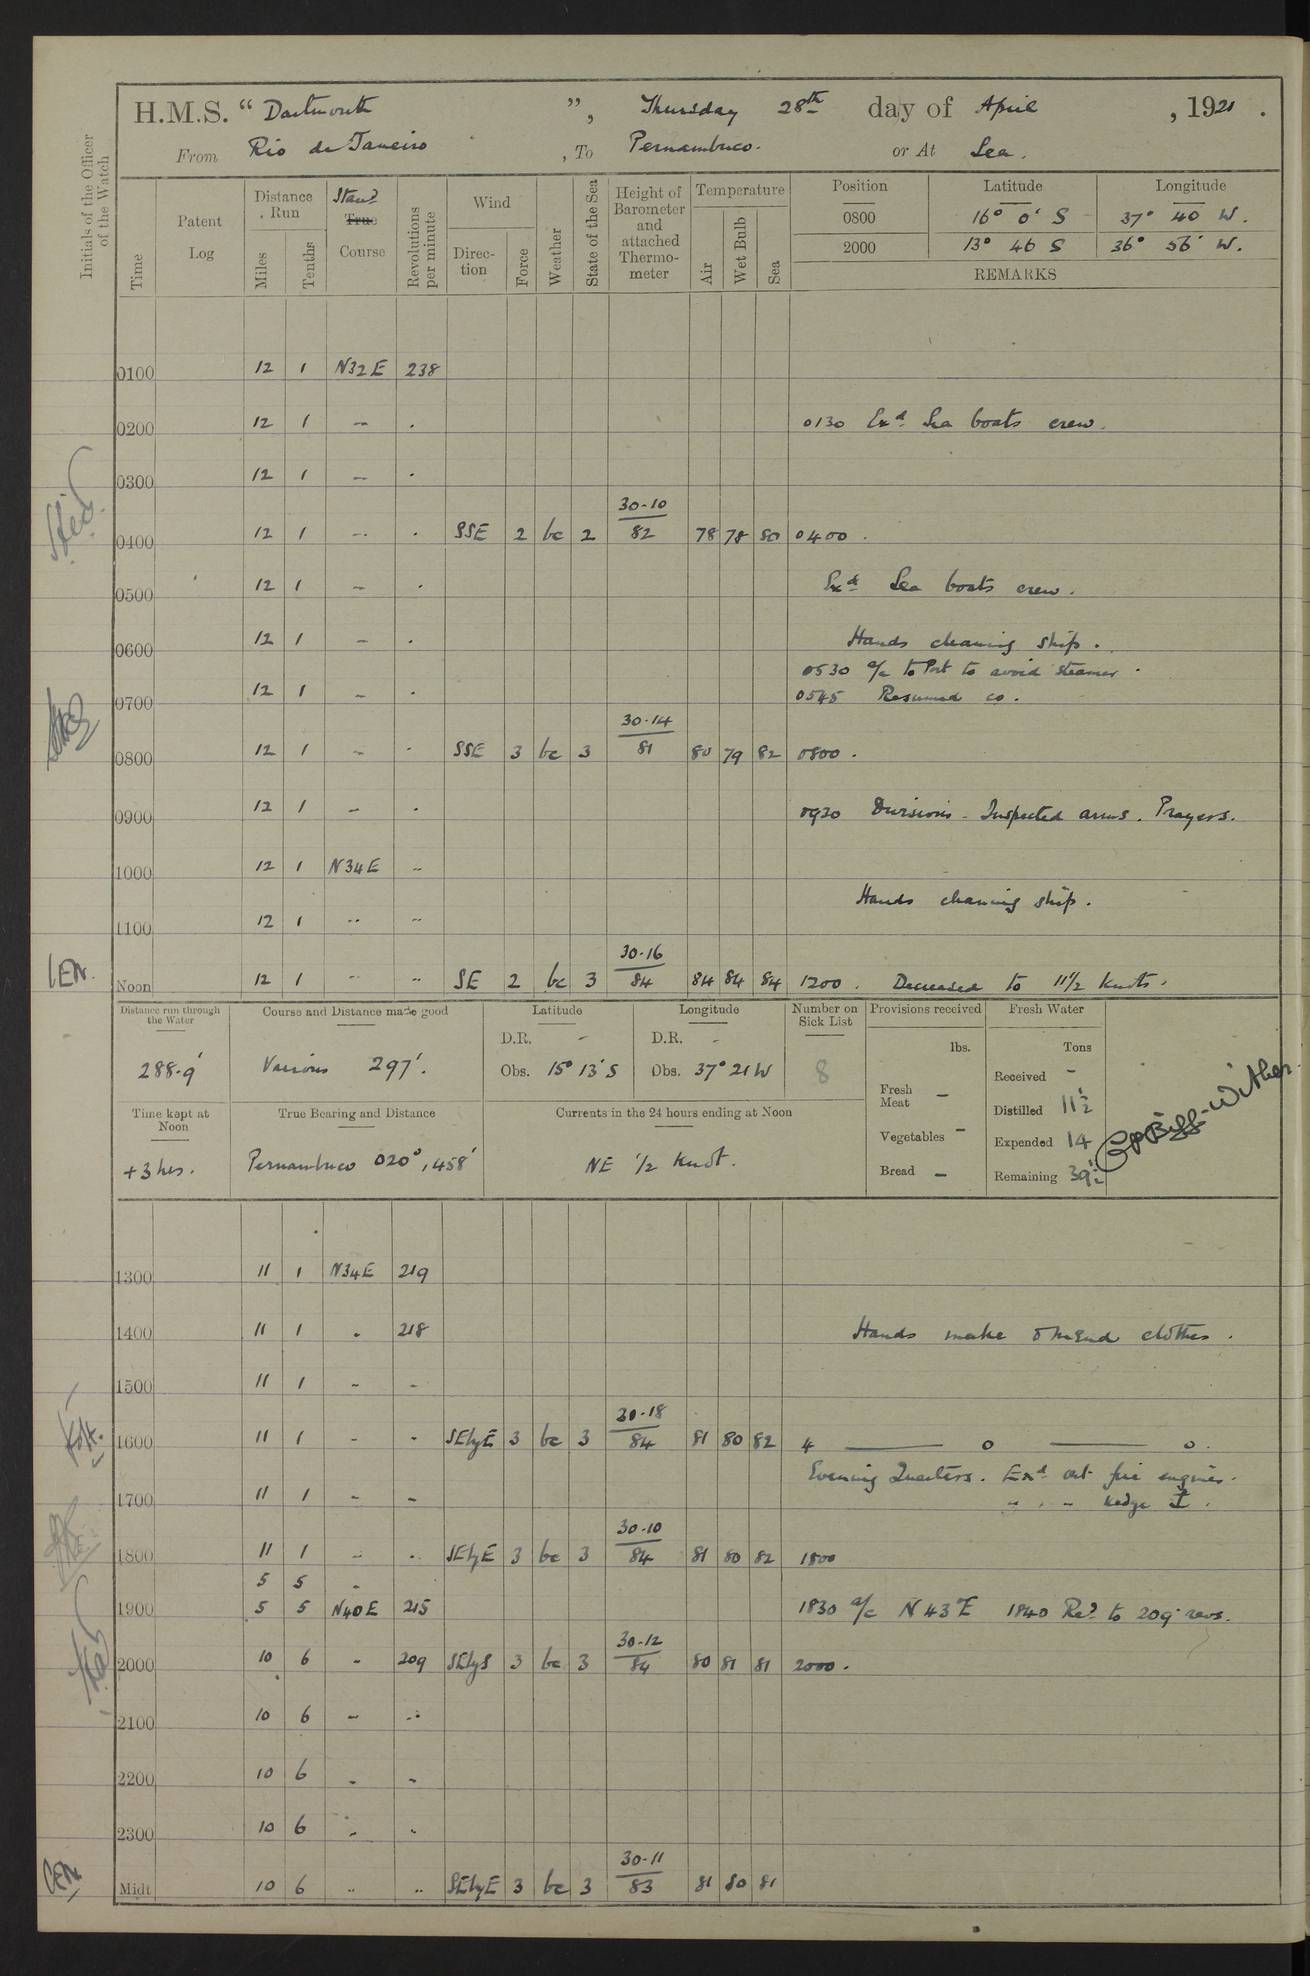 H.M.S. “ Dartmouth ”, Thursday 28th day of April , 1921 .
From Rio de Janeiro , To Pernambuco. or At Sea.
Initials of the Officer of the Watch
Time
Patent Log
Distance Run
Miles
Tenths
Stand
True
Course
Revolutions per minute
Wind
Direc-tion
Force
Weather
State of the Sea
Height of Barometer and attached Thermo-meter
Temperature
Air
Wet Bulb
Sea
Position Latitude Longitude
0800 16° 0' S 37° 40 W.
2000 13° 46 S 36° 56' W.
REMARKS
0100 12 1 N32E 238
0200 12 1 – . 0130 Exd Sea boats crew.
0300 12 1 – .
30-10
0400 12 1 – . SSE 2 bc 2 82 78 78 80 0400 .
0500 12 1 – . Exd Sea boats crew.
0600 12 1 – . Hands cleaning ship.
0530 a/c to Port to avoid steamer .
0700 12 1 – . 0545 Resumed co.
30-14
0800 12 1 – . SSE 3 bc 3 81 80 79 82 0800 .
0900 12 1 – . 0920 Divisions - Inspected arms. Prayers.
1000 12 1 N34E ..
Hands cleaning ship.
1100 12 1 .. ..
30-16
LEN. Noon 12 1 .. .. SE 2 bc 3 84 84 84 84 1200 . Decreased to 11½ knots.
Distance run through the Water
288.9'
Course and Distance made good
Various 297'.
Latitude
D.R. -
Obs. 15° 13' S
Longitude
D.R. -
Obs. 37° 21 W
Number on Sick List
8
Provisions received
lbs.
Fresh Meat –
Vegetables –
Bread –
Fresh Water
Tons
Received -
Distilled 11½
Expended 14
Remaining 39½
Time kept at Noon
+3 hrs.
True Bearing and Distance
Pernambuco 020°, 458'
Currents in the 24 hours ending at Noon
NE ½ Knot.
1300 11 1 N34E 219
1400 11 1 . 218 Hands make & mend clothes .
1500 11 1 - -
30-18
1600 11 1 - - SEbyE 3 bc 3 84 81 80 82 4 —— o —— o.
Evening Quarters. Exd out fire engines.
1700 11 1 - - " . " kedge ⚓ .
30-10
1800 11 1 - . SEbyE 3 bc 3 84 81 80 82 1800
5 5 -
1900 5 5 N40E 215 1830 a/c N43°E 1840 Red to 209 revs.
30-12
2000 10 6 - 209 SEbyS 3 bc 3 84 80 81 81 2000 .
2100 10 6 - ..
2200 10 6 - -
2300 10 6 - .
30-11
LEN Midt 10 6 .. .. SEbyE 3 bc 3 83 81 80 81